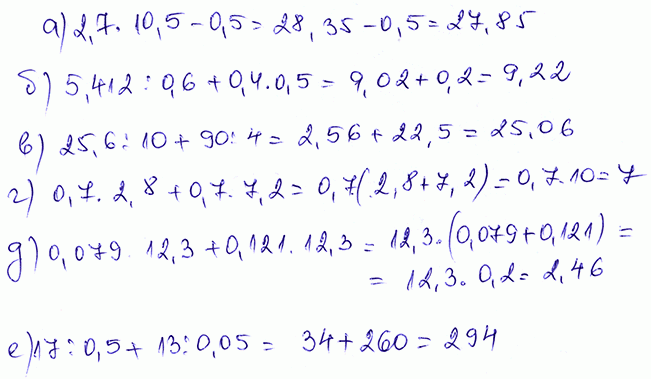 а) 2,7 · 10,5 - 0,5 = 28,35 - 0,5 = 27,85
б) 5,412 : 0,6 + 0,4 · 0,5 = 9,02 + 0,2 = 9,22
в) 25,6 : 10 + 90 : 4 = 2,56 + 22,5 = 25,06
г) 0,7 · 2,8 + 0,7 · 7,2 = 0,7(2,8 + 7,2) = 0,7 · 10 = 7
д) 0,079 · 12,3 + 0,121 · 12,3 = 12,3 · (0,079 + 0,121) =
= 12,3 · 0,2 = 2,46
е) 17 : 0,5 + 13 : 0,05 = 34 + 260 = 294